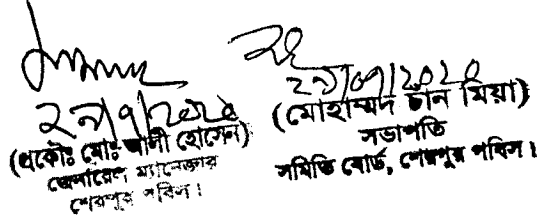 ২৯/৭/২০২০
(প্রকৌঃ মোঃ আলী হোসেন)
জেনারেল ম্যানেজার
শেরপুর পবিস।
২৯/০৭/২০২০
(মোহাম্মদ চাঁন মিয়া)
সভাপতি
সমিতি বোর্ড, শেরপুর পবিস।